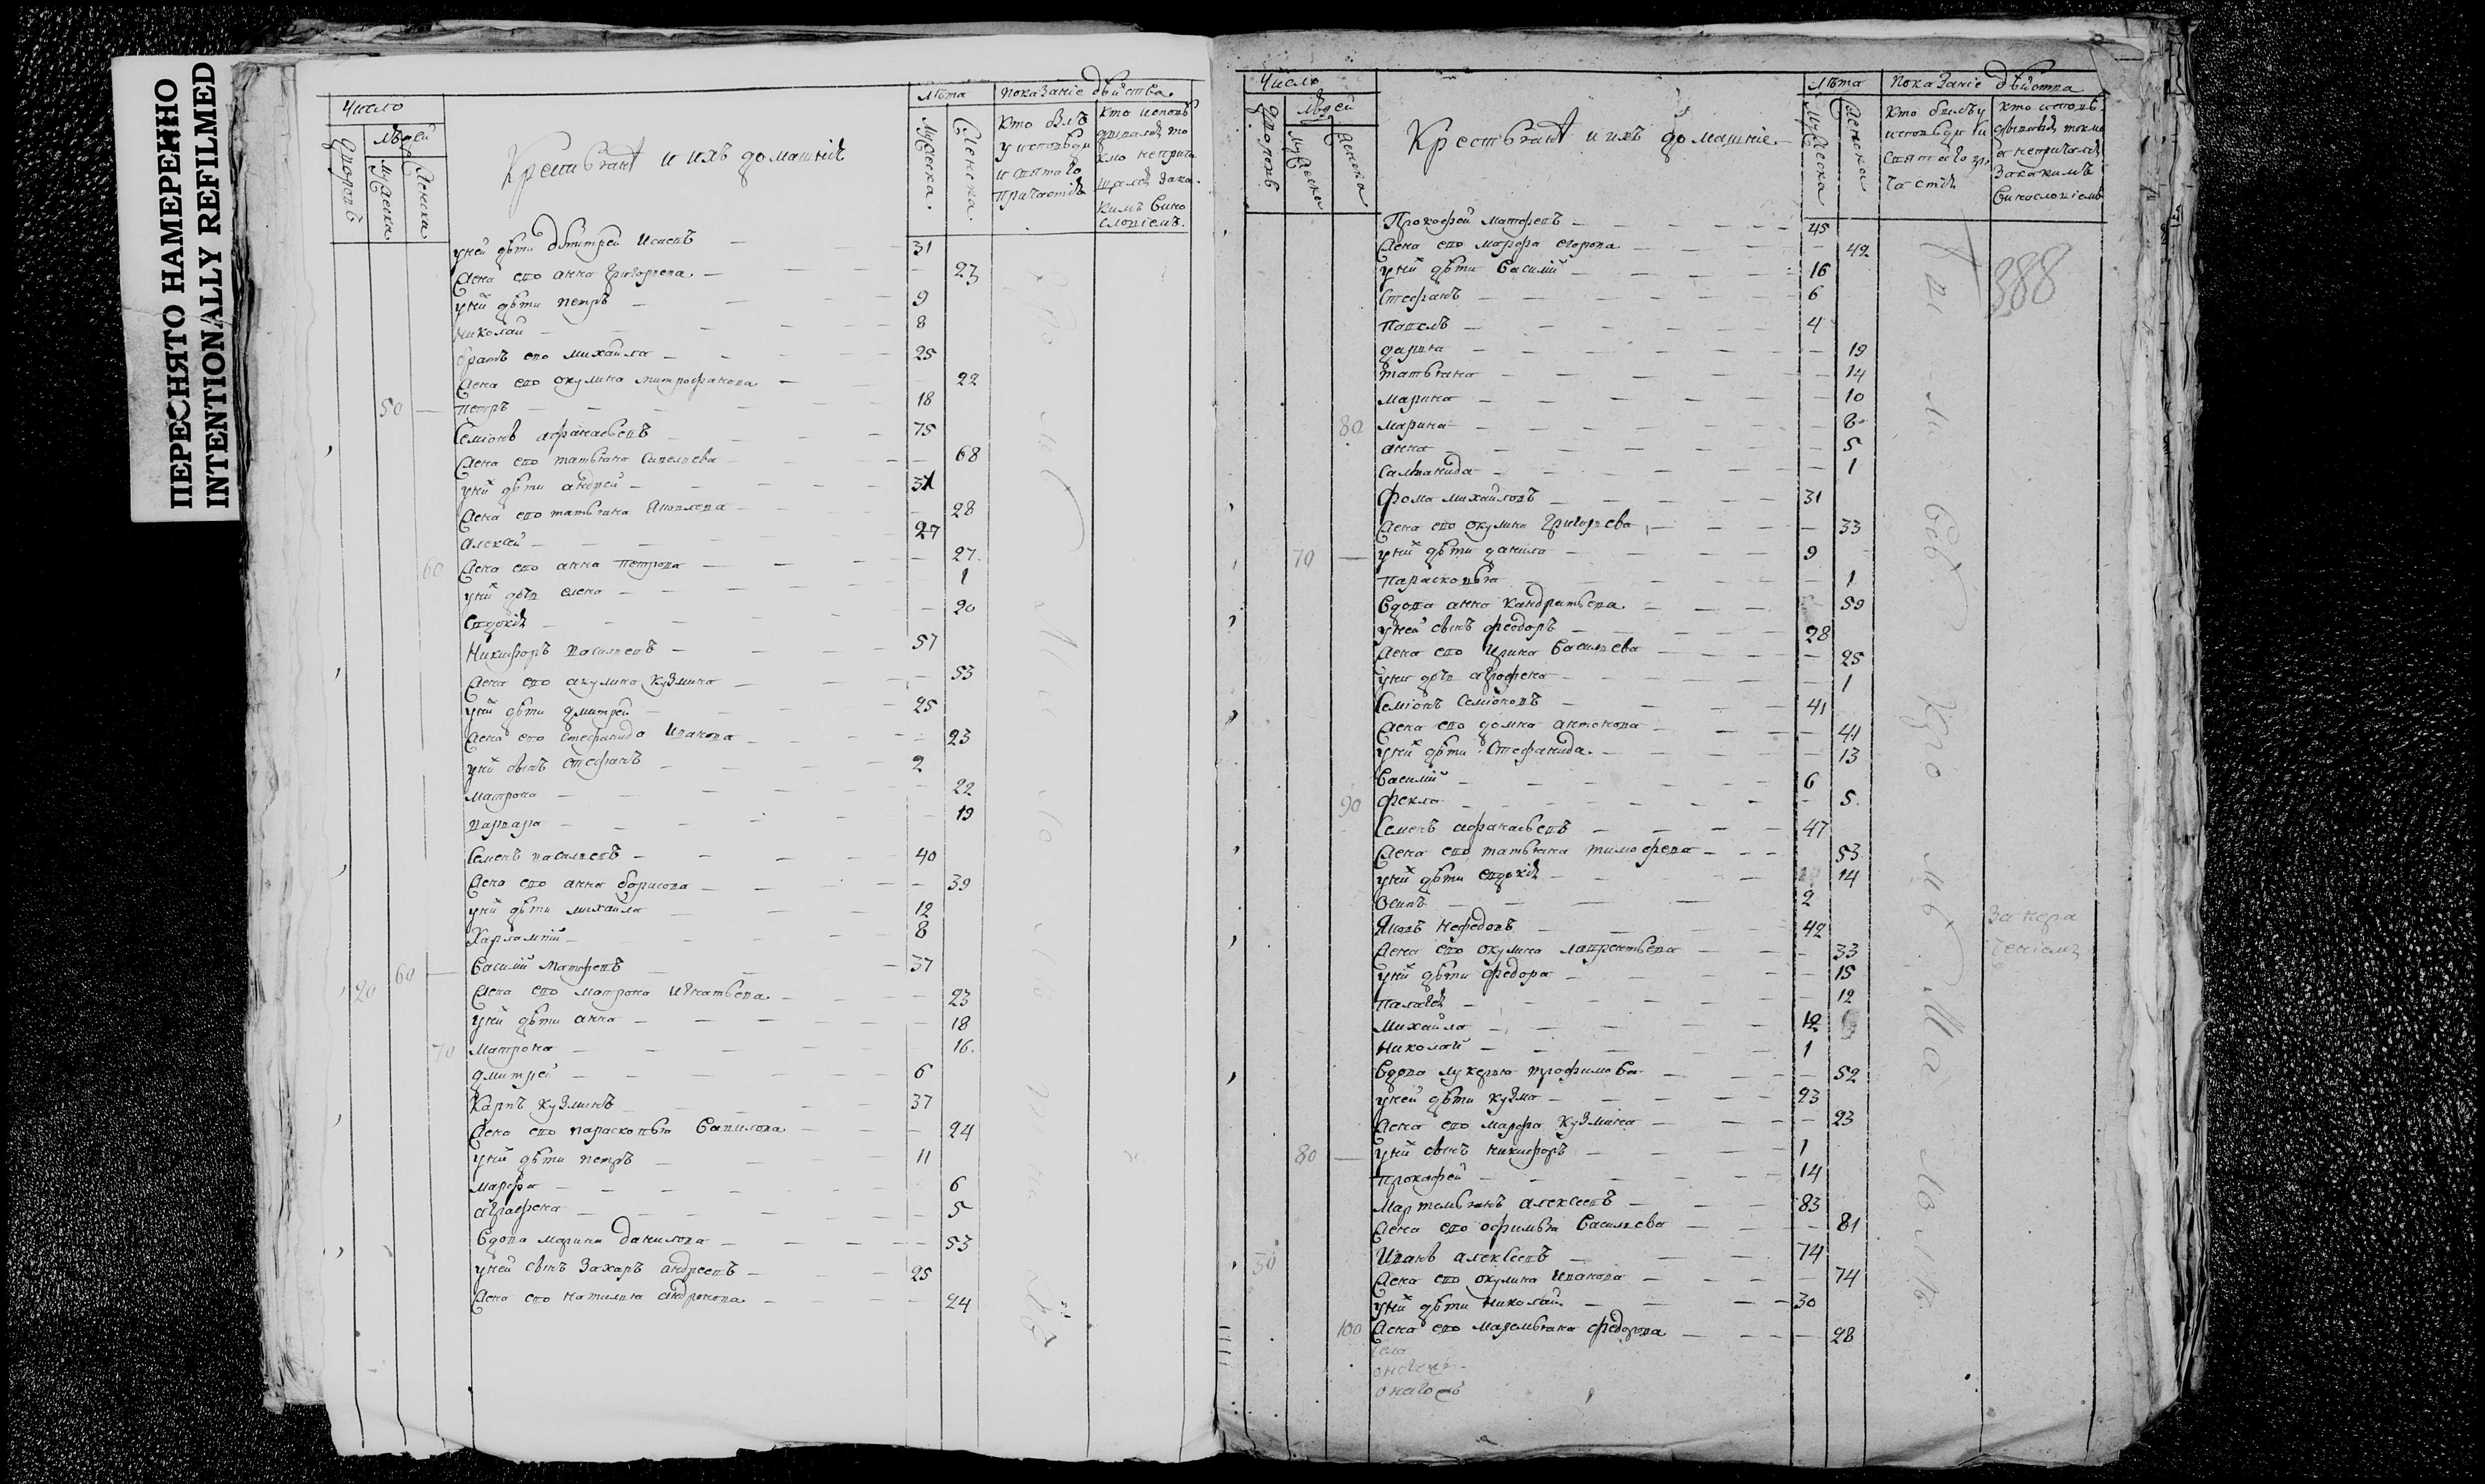 ПЕРЕСНЯТО НАМЕРЕННО
INTENTIONALLY REFILMED
Число
Людей
дворовъ
мужеска
женска
Крестьянѣ и ихъ домашнїѣ
лѣта
мужеска.
женска.
показанїе дѣйства.
кто былъ
у исповѣди
и святаго
причастія
кто исповѣ
дывался то
кмо неприча
щался зака
кимъ вино
словіемъ.
уней дѣти дмитрей Исаевъ 31
жена ево анна григорьева 27
уних дѣти петръ 9
николай 8
братъ ево михайла 25
жена ево окулина митрофанова 22
50 петръ 18
Семіонъ афанасьевъ 75
жена ево татьяна Савельева 68
уних дѣти андрей 31
жена ево татьяна Яковлева 28
алексей 27
60 жена ево анна петрова 27
уних дочь елена 1
Евдокія 20
Никифоръ васильевъ 57
жена ево акулина кузмина 53
уних дѣти дмитрей 25
жена ево стефанида Иванова 23
уних сынъ стефанъ 2
матрона 22
варвара 19
Семенъ васильевъ 40
жена ево анна борисова 39
уних дѣти михайла 12
Харлампий 8
60 Василий Матфеевъ 37
20 жена ево матрона Игнатьева 23
уних дѣти анна 18
70 матрона 16
дмитрей 6
Карпъ кузминъ 37
жена ево парасковья Гаврилова 24
уних дѣти петръ 11
марфа 6
аграфена 5
Вдова марина данилова 53
уней сынъ Захаръ андреевъ 25
жена ево наталья андронова 24
Число
Людей
дворовъ
мужеска
женска
Крестьянѣ и ихъ домашнїе
лѣта
мужеска
женска
показанїе дѣйства
кто былъ у
исповѣди и
святаго при
частія
кто исповѣ
дывался токмо
непричащался
закакимъ
винословіемъ
388
Прокофей матфеевъ 45
жена ево марфа егорова 42
уних дѣти Василий 16
Стефанъ 6
павелъ 4
дарья 19
татьяна 14
марина 10
80 марина 8
анна 5
1
Фома михайловъ 31
жена ево окулина григорьева 33
70 уних дѣти данила 9
парасковья 1
Вдова анна кандратьева 59
уней сынъ феодоръ 28
жена ево Ирина Васильева 25
уних дочь аграфена 1
Семіонъ Семіоновъ 41
жена ево домна антонова 41
уних дѣти Стефанида 13
Василий 6
90 фекла 5
Семенъ афанасьевъ 47
жена ево татьяна тимофеева 53
уних дѣти евдокія 14
Осипъ 2
Яковъ нефедовъ 42
жена ево окулина лаврентьева 33
уних дѣти федора 15
палагея 12
Михайла 12
николай 1
Вдова лукерья трофимова 52
уней дѣти кузма 23
жена ево марфа кузмина 23
80 уних сынъ никифоръ 1
прокофей 14
Мартемьянъ алексеевъ 83
жена ево офимья Васильева 81
30 Иванъ алексеевъ 74
жена ево окулина Иванова 74
уних дѣти николай 30
100 жена ево маремьяна федорова 28